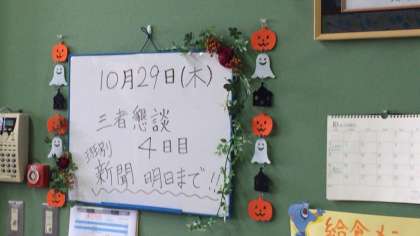 10月29日(木)
三者懇談
4日目
新聞 明日まで!!
10
給食